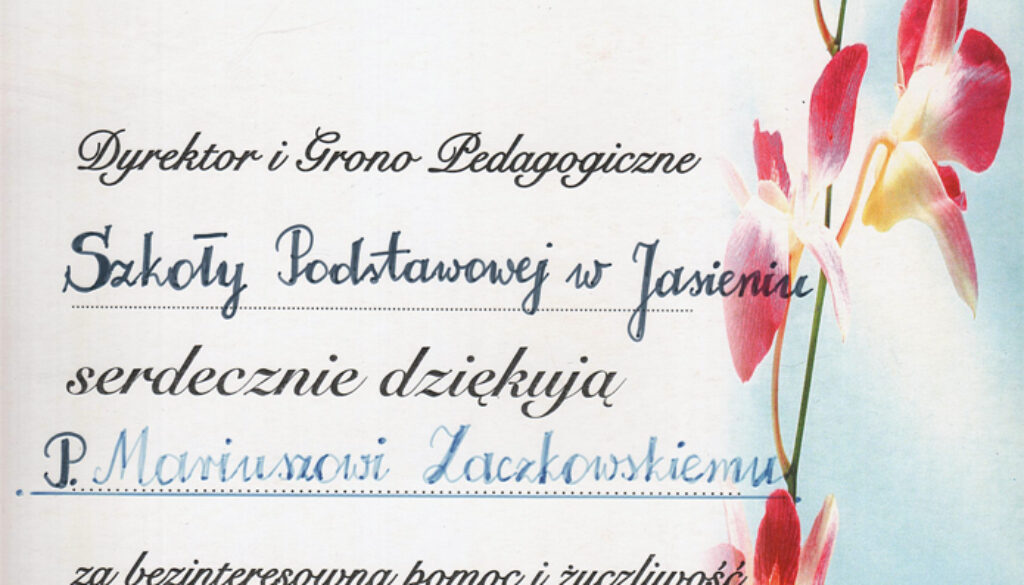 Dyrektor i Grono Pedagogiczne
Szkoły Podstawowej w Jasieniu
serdecznie dziękują
P. Mariuszowi Zaczkowskiemu
za bezinteresowną pomoc i życzliwość